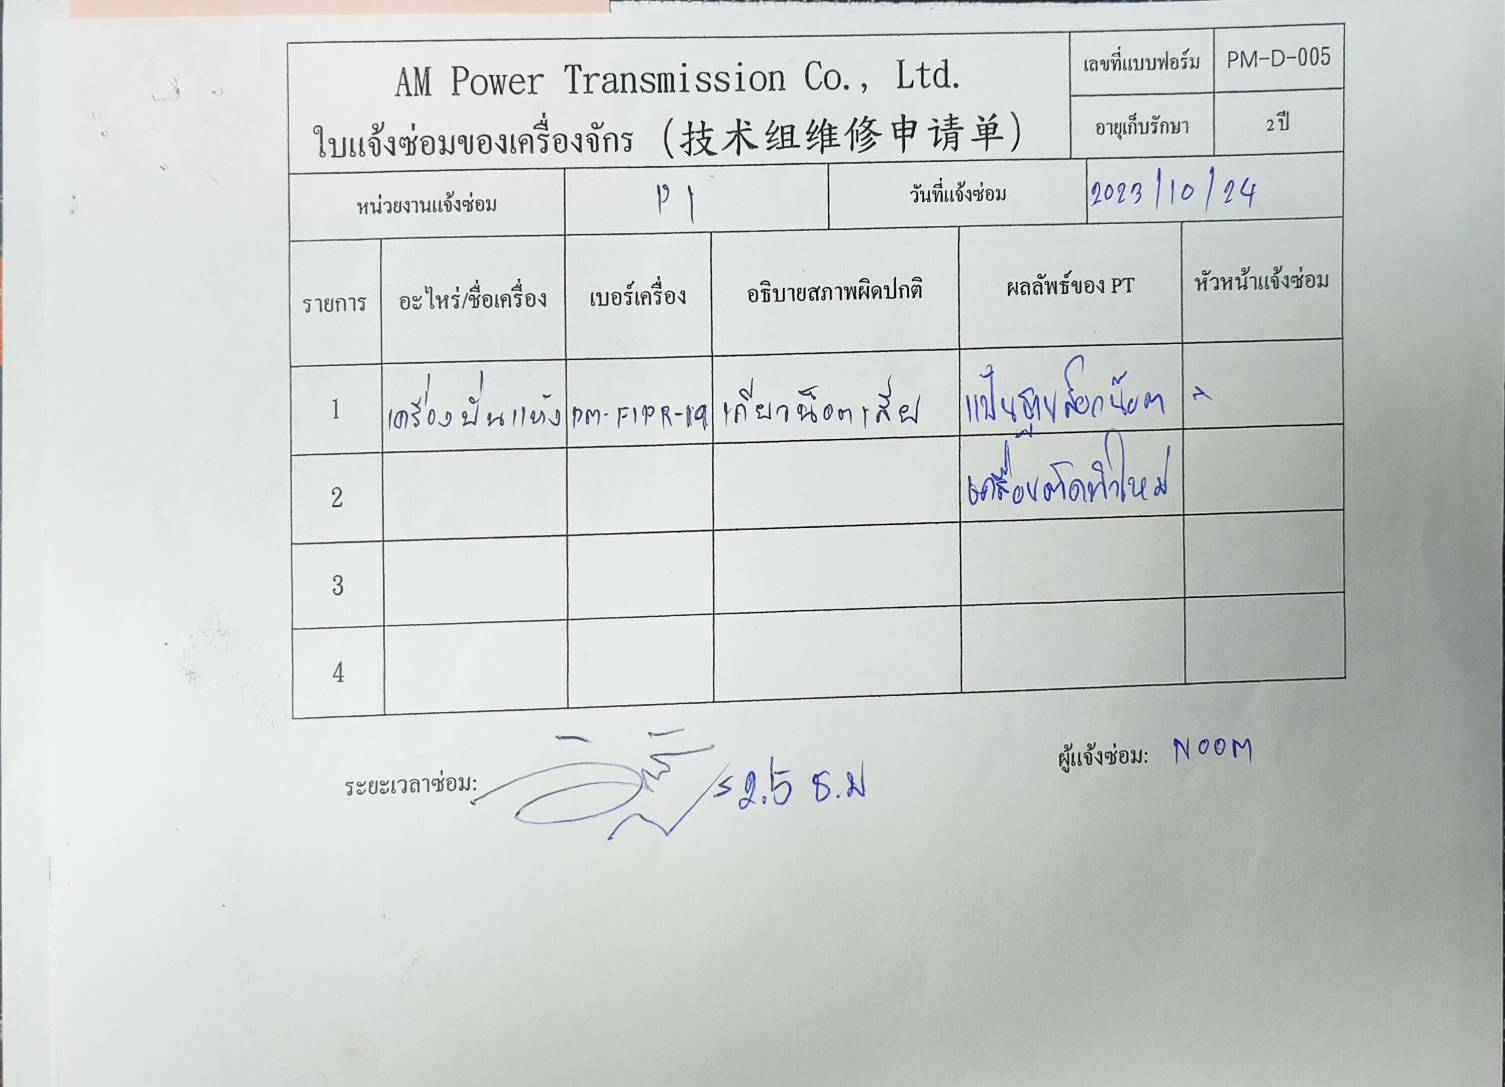 AM Power Transmission Co., Ltd.
ใบแจ้งซ่อมของเครื่องจักร (技术组维修申请单)
เลขที่แบบฟอร์ม PM-D-005
อายุเก็บรักษา 2 ปี
หน่วยงานแจ้งซ่อม P1 วันที่แจ้งซ่อม 2023/10/24
รายการ อะไหร่/ชื่อเครื่อง เบอร์เครื่อง อธิบายสภาพผิดปกติ ผลลัพธ์ของ PT หัวหน้าแจ้งซ่อม
1 เครื่องปั่นแห้ง PM-F1PR-19 เกียวน็อตเสีย แป้นฐานล็อกน็อต
2 เครื่องตัดทำใหม่
3
4
ระยะเวลาซ่อม: 2.5 ช.ม
ผู้แจ้งซ่อม: NOOM